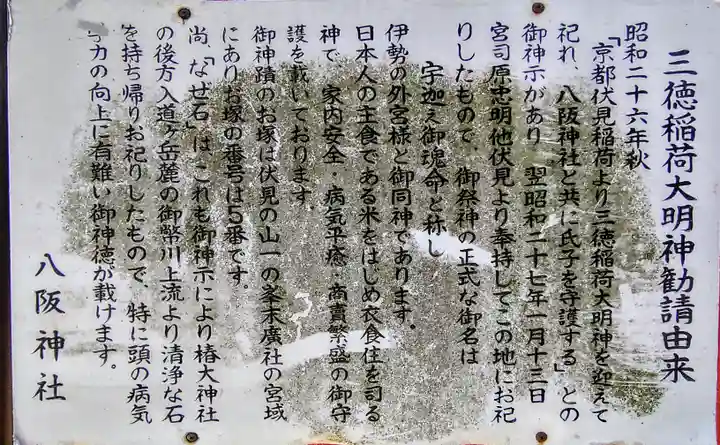 三徳稲荷大明神勧請由来
昭和二十六年秋
「京都伏見稲荷より三徳稲荷大明神を迎えて
祀れ、八阪神社と共に氏子を守護する」との
御神示があり 翌昭和二十七年一月十三日
宮司原忠明他伏見より奉持してこの地にお祀
りしたもので 御祭神の正式な御名は
宇迦之御魂命と称し
伊勢の外宮様と御同神であります。
日本人の主食である米をはじめ衣食住を司る
神で 家内安全・病気平癒 商賣繁盛の御守
護を戴いております。
御神蹟のお塚は伏見の山一の峯末廣社の宮域
にありお塚の番号は5番です。
尚、「なぜ石」は これも御神示により椿大神社
の後方入道ヶ岳麓の御幣川上流より清浄な石
を持ち帰りお祀りしたもので、特に頭の病気
力の向上に有難い御神徳が載けます。
八阪神社